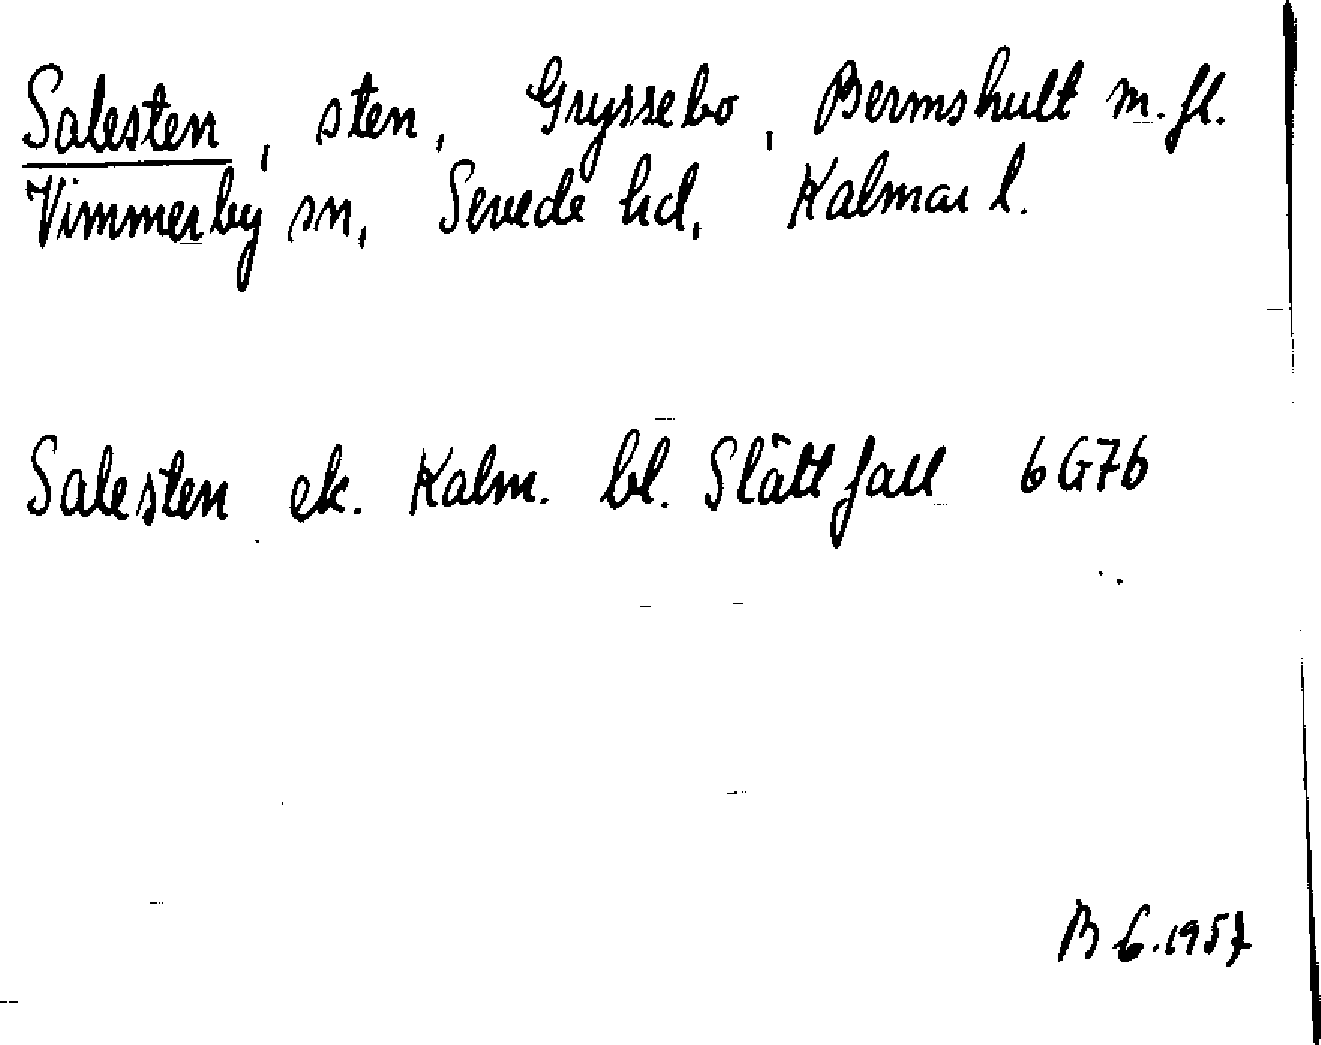 Salesten, sten, Gryssebo, Bermshult m.fl.
Vimmerby sn, Sevede hd, Kalmar l.
Salesten ek. Kalm. bl. Slättfall 6G76
B G.1957